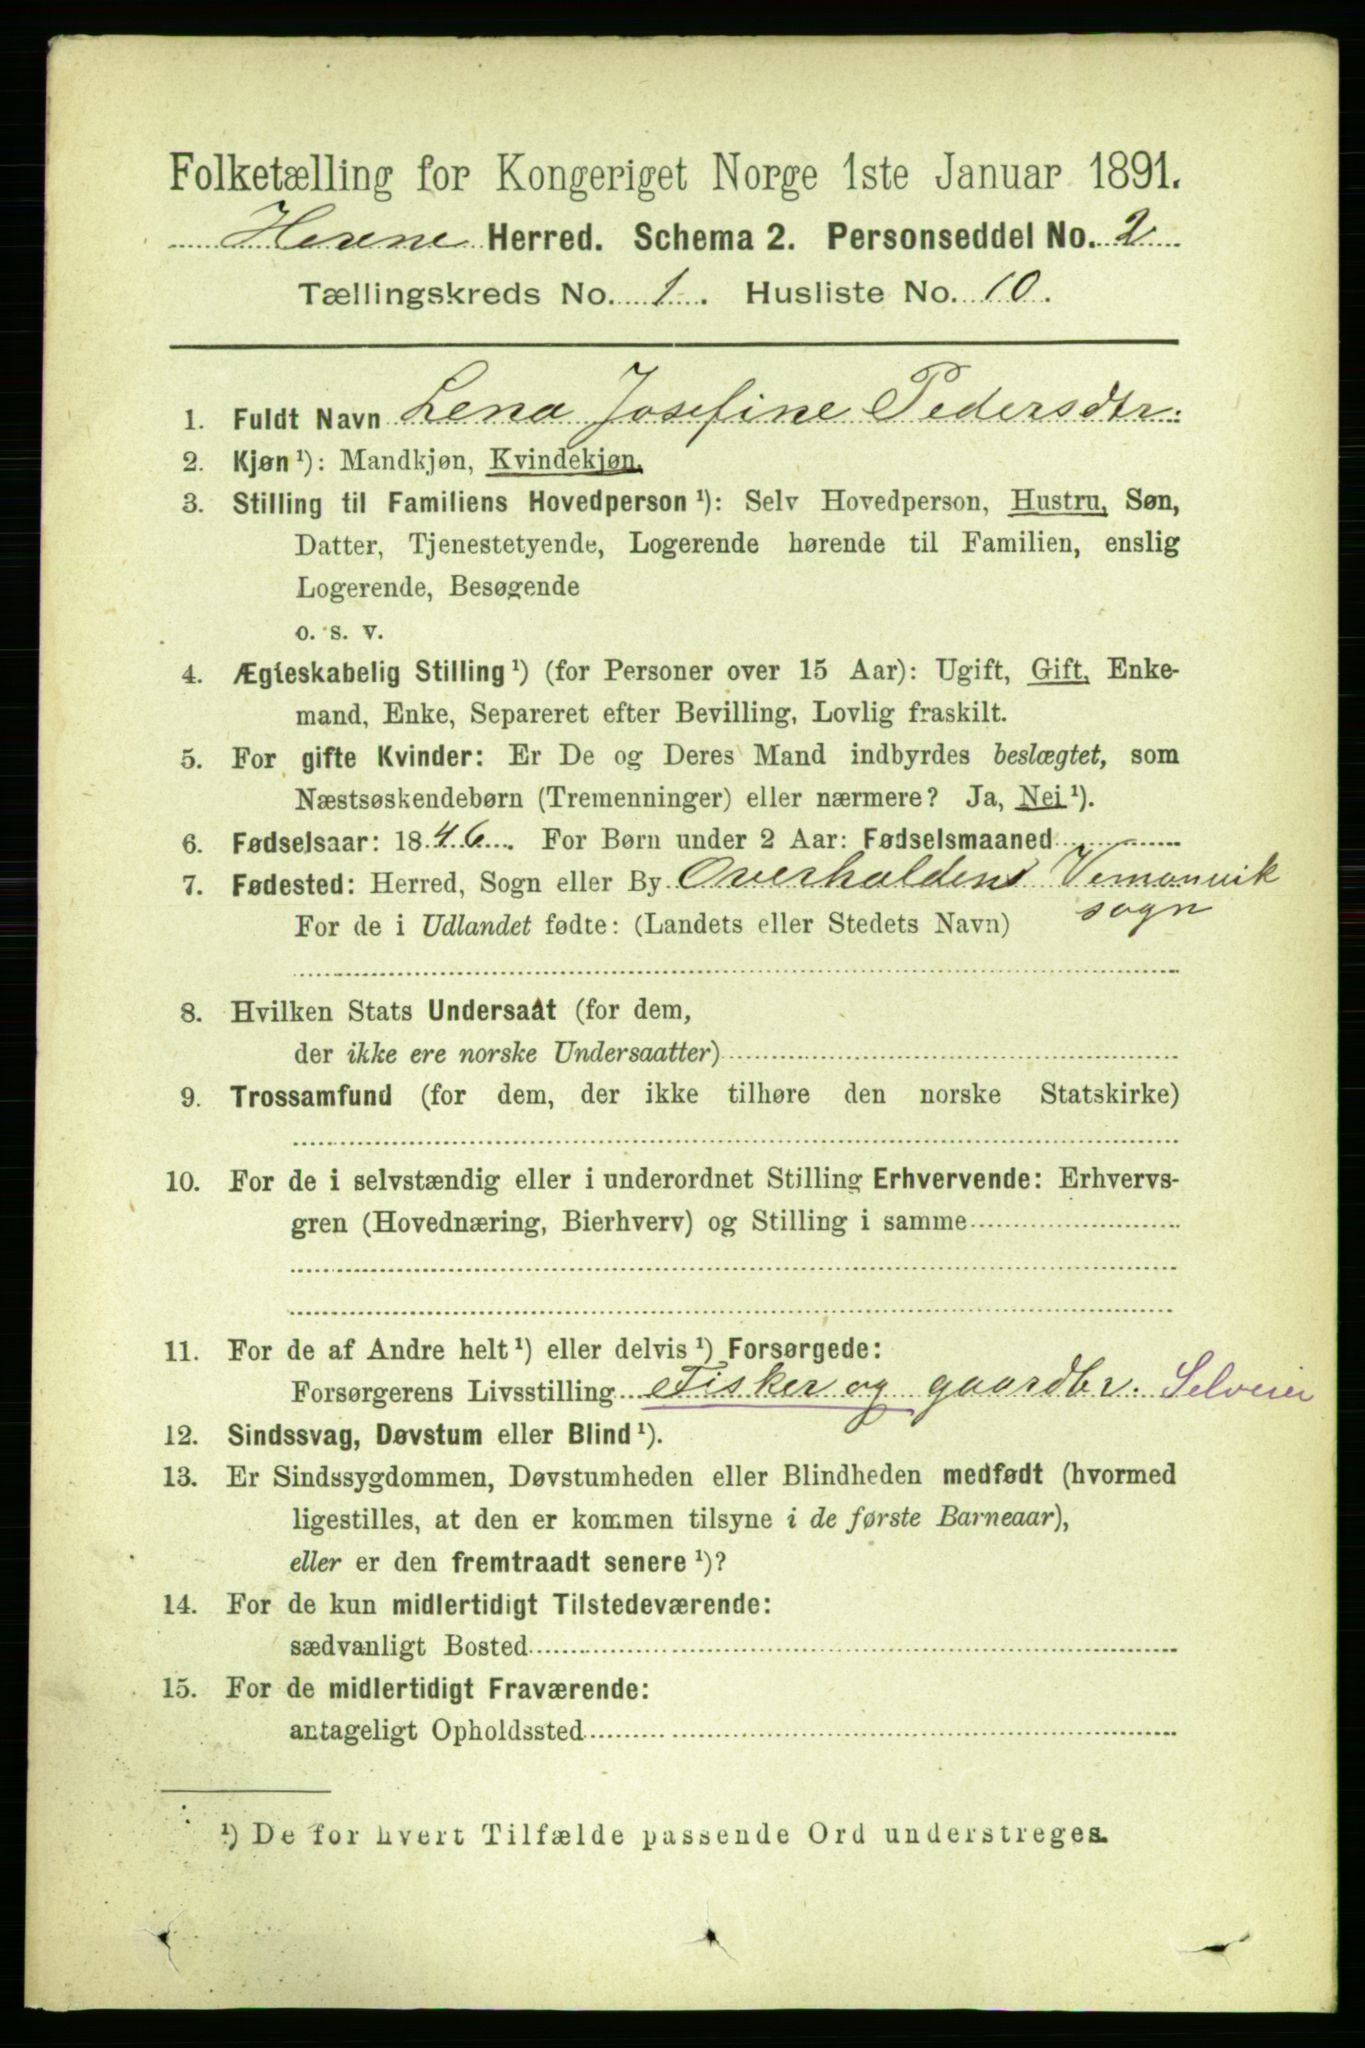 Folketælling for Kongeriget Norge 1ste Januar 1891.
Herene Herred. Schema 2. Personseddel No. 2
Tællingskreds No. 1. Husliste No. 10.
1. Fuldt Navn Lena Josefine Pedersdtr.
2. Kjøn ¹): Mandkjøn, Kvindekjøn.
3. Stilling til Familiens Hovedperson ¹): Selv Hovedperson, Hustru, Søn,
Datter, Tjenestetyende, Logerende hørende til Familien, enslig
Logerende, Besøgende
o. s. v.
4. Ægteskabelig Stilling ¹) (for Personer over 15 Aar): Ugift, Gift, Enke-
mand, Enke, Separeret efter Bevilling, Lovlig fraskilt.
5. For gifte Kvinder: Er De og Deres Mand indbyrdes beslægtet, som
Næstsøskendebørn (Tremenninger) eller nærmere? Ja, Nei ¹).
6. Fødselsaar: 1846. For Børn under 2 Aar: Fødselsmaaned
7. Fødested: Herred, Sogn eller By Overhaldens Vemunvik
sogn
For de i Udlandet fødte: (Landets eller Stedets Navn)
8. Hvilken Stats Undersaat (for dem,
der ikke ere norske Undersaatter)
9. Trossamfund (for dem, der ikke tilhøre den norske Statskirke)
10. For de i selvstændig eller i underordnet Stilling Erhvervende: Erhvervs-
gren (Hovednæring, Bierhverv) og Stilling i samme
11. For de af Andre helt ¹) eller delvis ¹) Forsørgede:
Forsørgerens Livsstilling Fisker og gaardbr. Selveier
12. Sindssvag, Døvstum eller Blind ¹).
13. Er Sindssygdommen, Døvstumheden eller Blindheden medfødt (hvormed
ligestilles, at den er kommen tilsyne i de første Barneaar),
eller er den fremtraadt senere ¹)?
14. For de kun midlertidigt Tilstedeværende:
sædvanligt Bosted
15. For de midlertidigt Fraværende:
antageligt Opholdssted
¹) De for hvert Tilfælde passende Ord understreges.